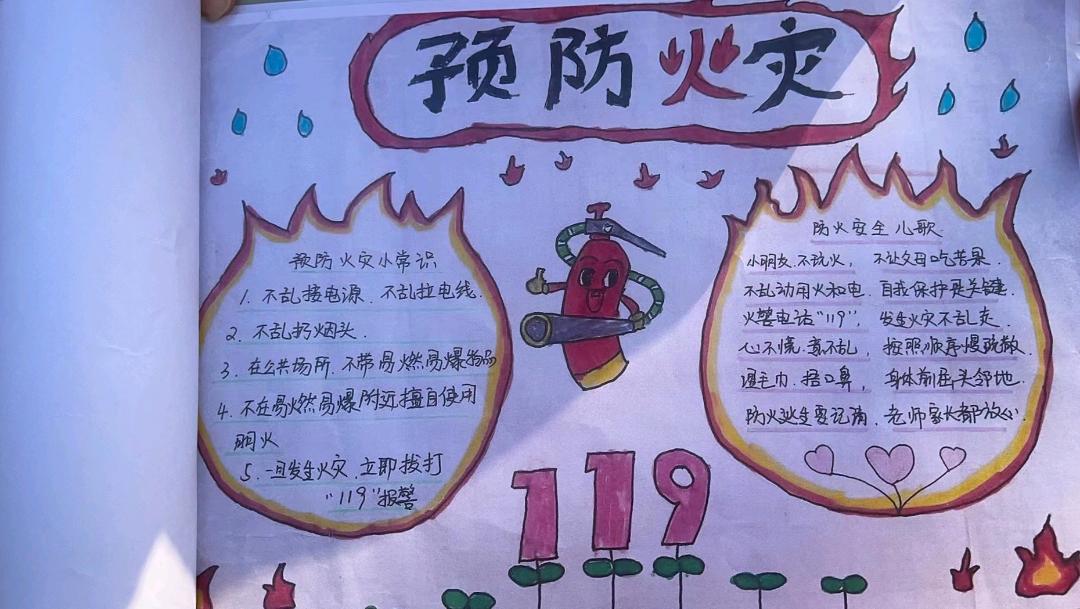 预防火灾
预防火灾小常识
1. 不乱接电源、不乱拉电线.
2. 不乱扔烟头.
3. 在公共场所、不带易燃易爆物品
4. 不在易燃易爆附近擅自使用
明火
5. 一旦发生火灾、立即拨打
“119”报警
防火安全儿歌
小朋友.不玩火, 不让父母吃苦果.
不乱动用火和电. 自我保护是关键.
火警电话“119”, 发生火灾不乱走.
心不慌.意不乱, 按照顺序慢疏散.
湿毛巾.捂口鼻, 身体前屈头邻地.
防火逃生要记清. 老师家长都放心.
119